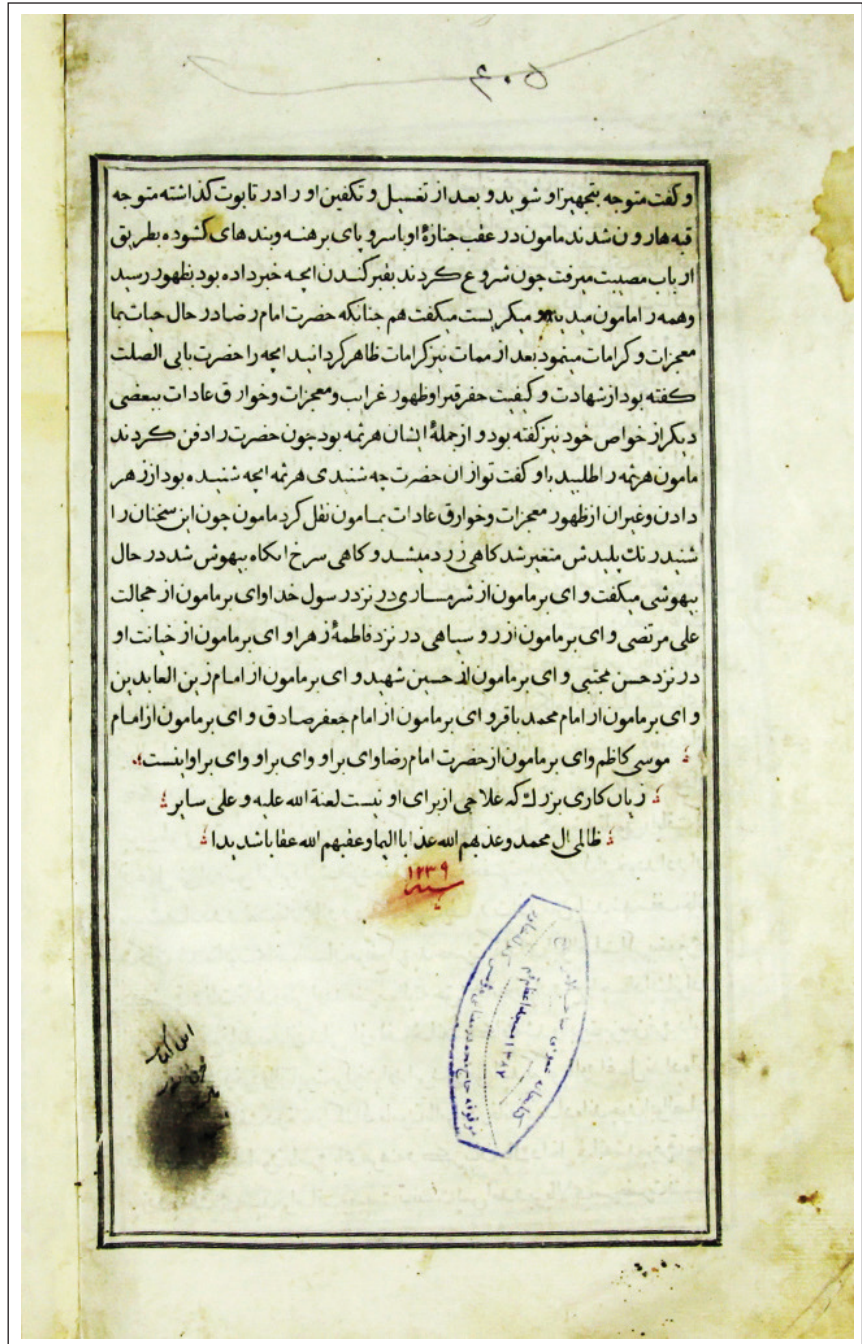 ۶۰۵
و کفت متوجه بتجهیز او شوید و بعد از تغسیل و تکفین او را در تابوت کذاشته متوجه
قبه هارون شدند مامون در عقب جنازهٔ او با سر و پای برهنه و بندهای کشوده بطریق
ارباب مصیبت میرفت چون شروع کردند بقبر کندن انچه خبر داده بود بظهور رسید
و همه را مامون میدید و میکریست میکفت هم جنانکه حضرت امام رضا در حال حیات بما
معجزات و کرامات مینمود بعد از ممات نیز کرامات ظاهر کردانید انچه را حضرت بابی الصلت
کفته بود از شهادت و کیفیت حفر قبر او ظهور غرایب و معجزات و خوارق عادات ببعضی
دیکر از خواص خود نیز کفته بود و از جملهٔ ایشان هرثمه بود چون حضرت را دفن کردند
مامون هرثمه را طلبید باو کفت تو از ان حضرت چه شنیدی هرثمه انچه شنیده بود از زهر
دادن و غیران از ظهور معجزات و خوارق عادات بمامون نقل کرد مامون چون این سخنان را
شنید رنك پلیدش متغیر شد کاهی زرد میشد و کاهی سرخ انکاه بیهوش شد در حال
بیهوشی میکفت وای بر مامون از شرمساری در نزد رسول خدا وای بر مامون از خجالت
علی مرتضی و ای بر مامون از رو سیاهی در نزد فاطمهٔ زهرا و ای بر مامون از خیانت او
در نزد حسن مجتبی و ای بر مامون از حسین شهید و ای بر مامون از امام زین العابدین
و ای بر مامون از امام محمد باقر و ای بر مامون از امام جعفر صادق و ای بر مامون از امام
موسی کاظم وای بر مامون از حضرت امام رضا وای بر او وای بر او وای بر او اینست
زیان کاری بزرك که علاجی از برای او نیست لعنة الله علیه و علی سایر
ظالمی ال محمد و عذبهم الله عذابا الیما و عقبهم الله عقابا شدیدا
۱۲۳۹
سنه